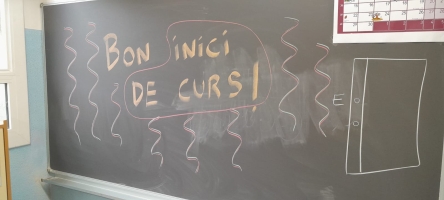 BON INICI
DE CURS!
E